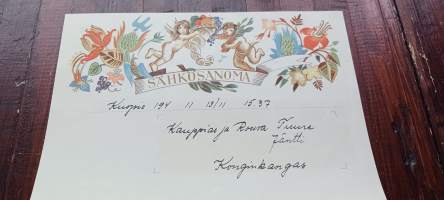 SÄHKÖSANOMA
Kuopio 194 11 13/11 15.37
Kauppias ja Rouva Tuure
Jäntti
Konginkangas